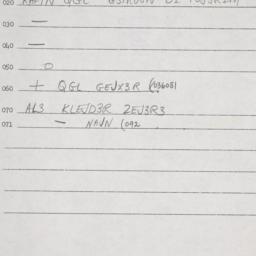 020
030 —
040 —
050 O
060 + QGL GEJX3R (036081
070 AL3 KLEJD3R ZEJ3R3
071 — NAJN (092